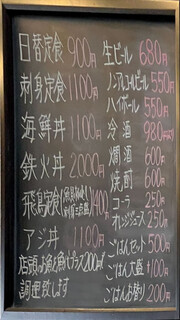 日替定食 900円
刺身定食 1100円
海鮮丼 1100円
鉄火丼 2000円
飛鳥定食 1400円
アジ丼 1100円
店頭のお魚を プラス200円で
調理致します
生ビール 680円
ノンアルコールビール 550円
ハイボール 550円
冷酒 980円
燗酒 600円
焼酎 600円
コーラ 250
オレンジジュース 250
ごはんセット 500
ごはん大盛 +100円
ごはんお替り 200円